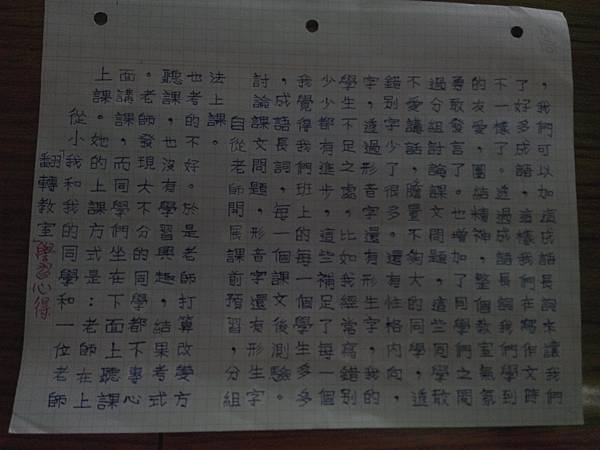 翻轉教室學習心得
從小我和我的同學和一位老師
上課。她的上課方式是：老師在上
面講課，而同學們坐在下面上聽課
。老師發現大不分的同學都不專心
聽課，也沒有學習興趣，結果考式
也考的不好。於是老師打算改變方
法上課。
自從老師開展課前預習，分組
討論課文問題，形音字還友形生字
，成語長詞，每一個課文後測驗。
我覺得我們班上的每一個學生多多
少少都有進步，這些補足了每一個
學生不足之處。比如我經常寫錯別
字，透過形音字還有形生字，我的
錯別字少了很多。還有性格內向，
不愛講話，膽量不夠大的同學，透
過分組討論課文問題，這些同學敢
勇敢發言了。也增加了同學們之間
的友愛，團結精神，整個教室氣氛
不一樣了。透過成語長詞我們學到
了好多成語，這樣我們在寫作文時
，我們可以加這成語長詞來讓我們